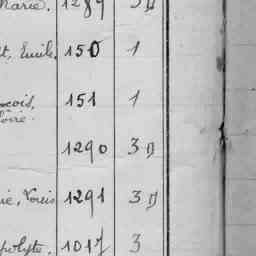 Marie. 1289 3 D
t, Emile. 150 1
çois, 151 1
1290 3 D
ie, Louis 1291 3 D
polyte. 1017 3